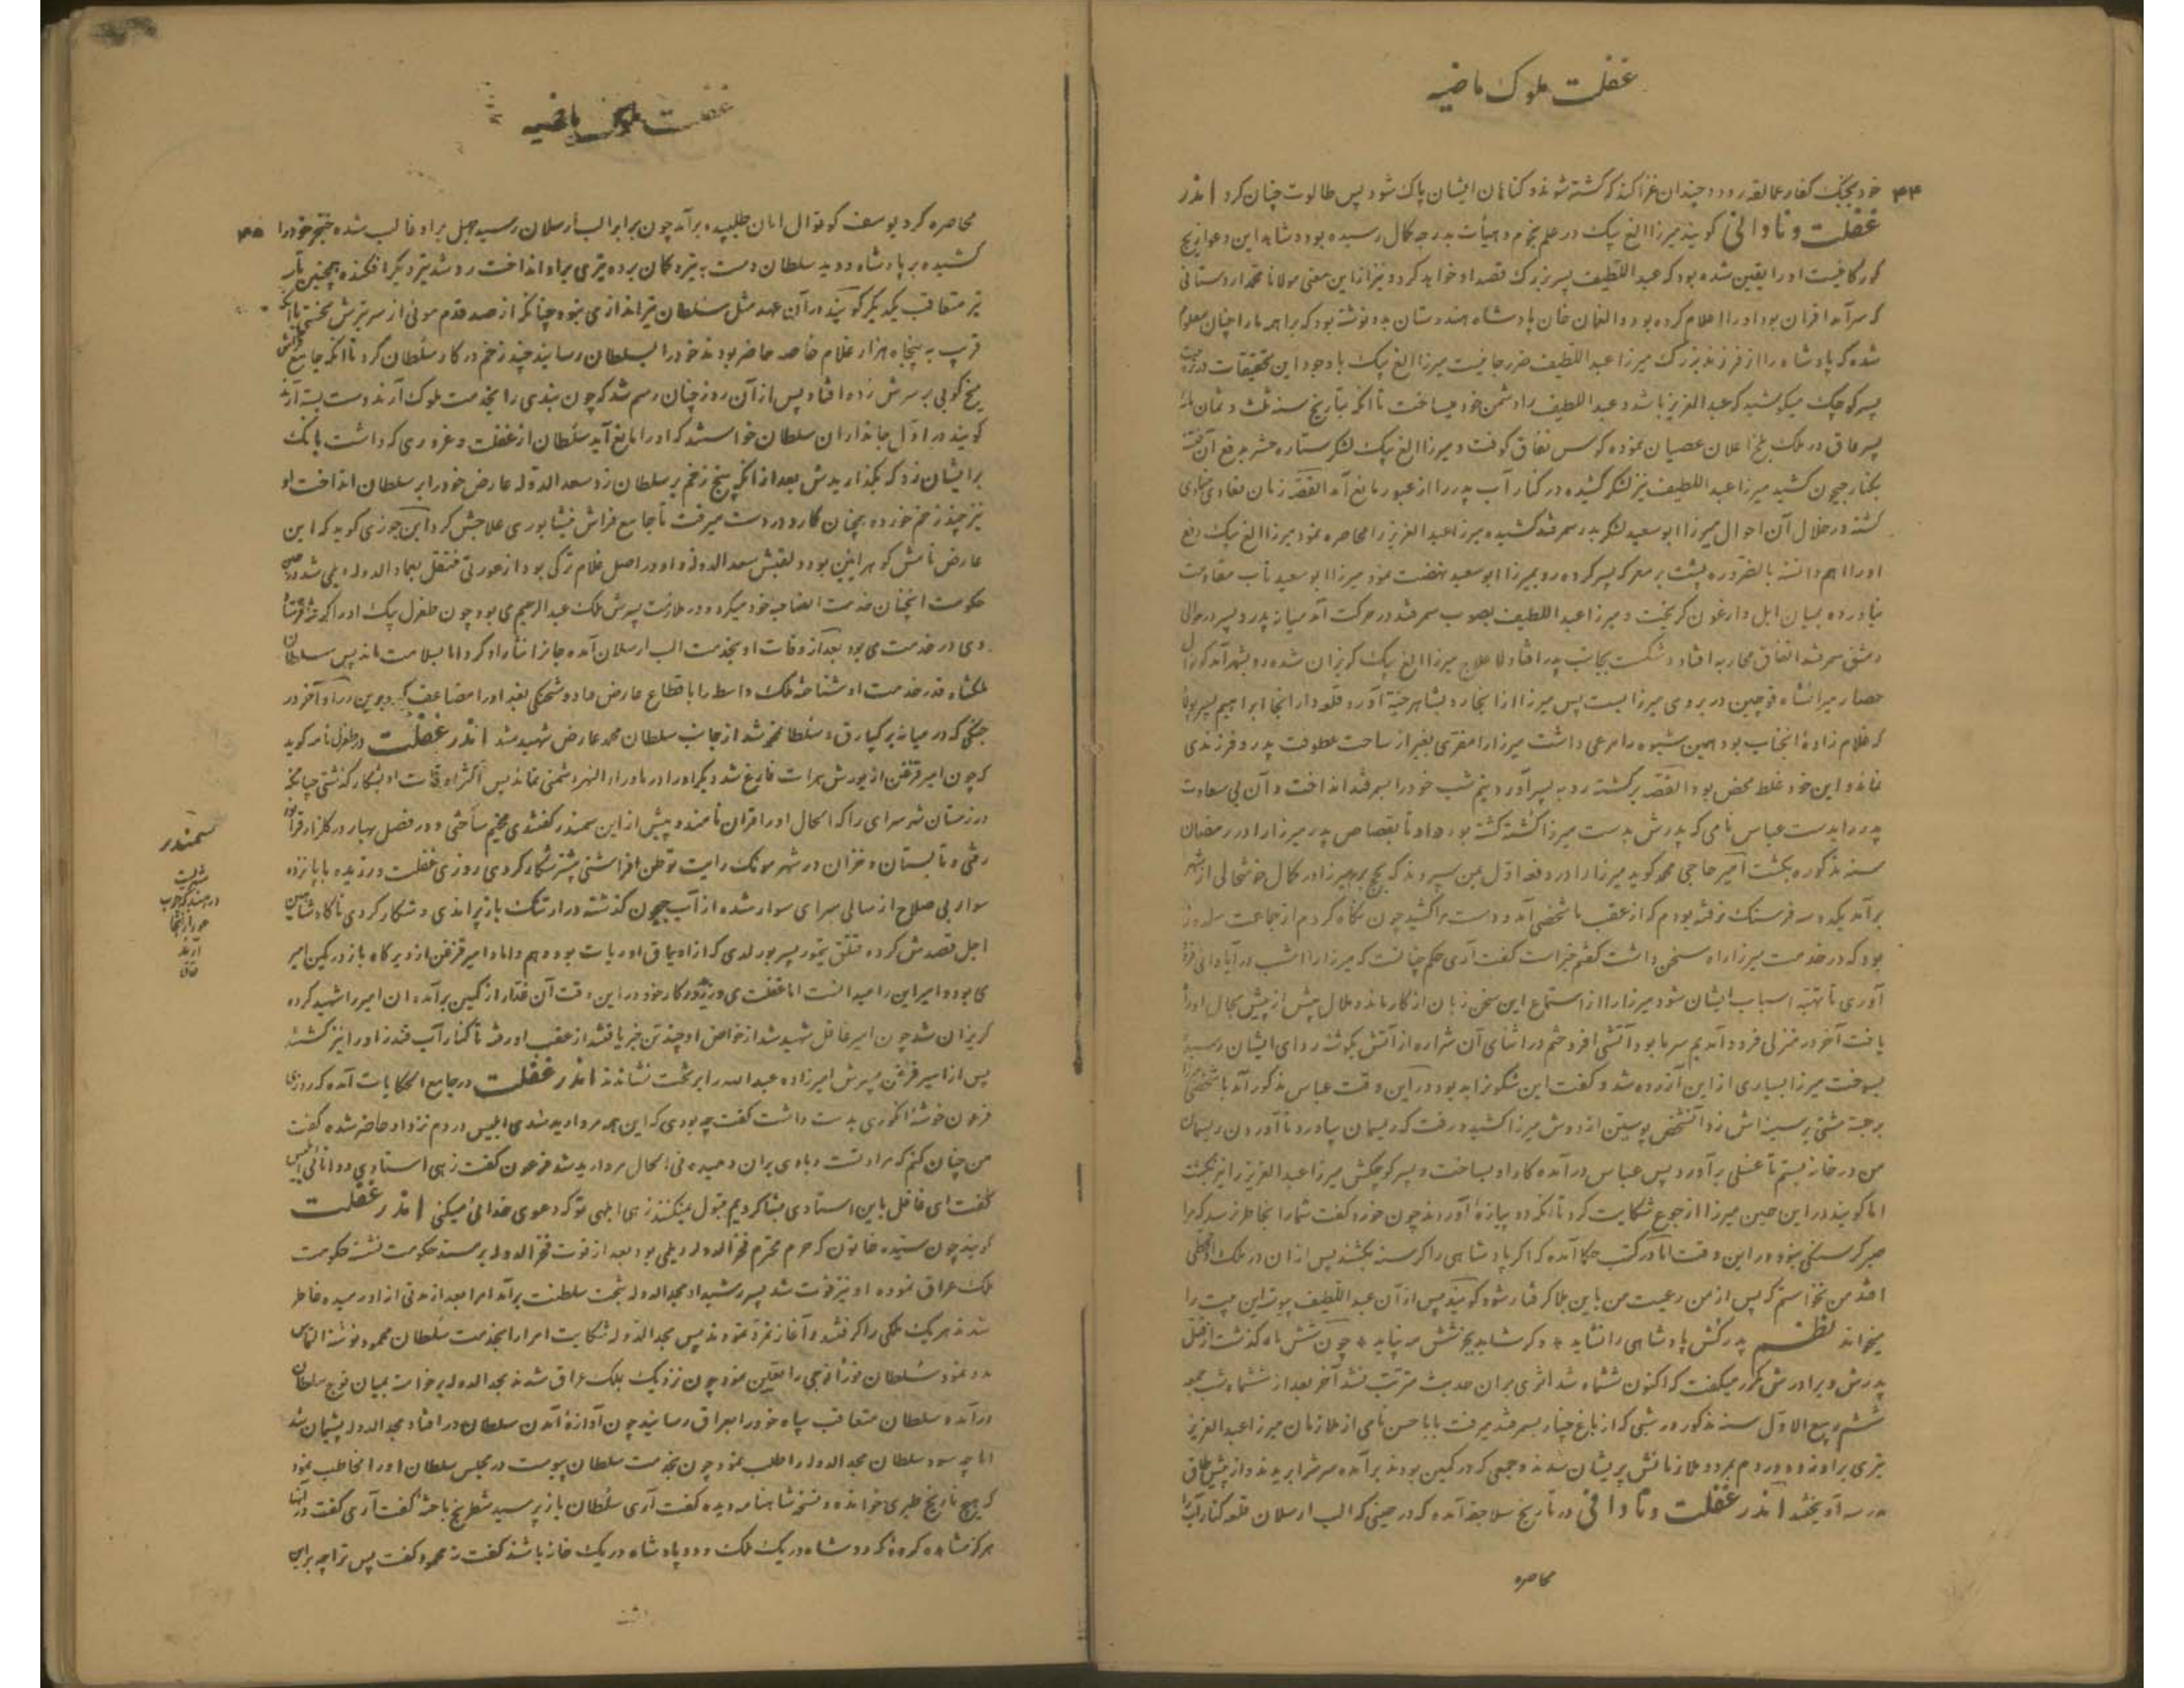 غفلت ملوک ماضیه
۴۴
خود بجنگ کفار عمالقه رود و چندان غزا کند که کشته شوند و کناهان ایشان پاک شود پس طالوت چنان کرد اندر
غفلت و نادانی کویند میرزا الغ بیک در علم نجوم و هیأت بدرجه کمال رسیده بود و شاهد این دعوا زیج
کورکانیست او را یقین شده بود که عبداللطیف پسر بزرک قصد او خواهد کرد و نیز از این معنی مولانا محمد اردستانی
که سرآمد اقران بود او را اعلام کرده بود و الغان خان پادشاه هندوستان بدو نوشته بود که براهمه ما را چنان معلوم
شده که پادشاه را از فرزند بزرک میرزا عبداللطیف ضرر جانیست میرزا الغ بیک با وجود این تحقیقات در تربیت
پسر کوچک میکوشید که عبدالعزیز باشد و عبداللطیف را دشمن خود میساخت تا آنکه بتأریخ سنه ثلث و ثمان مائه
پسر عاق در ملک بلخ اعلان عصیان نموده کوس نفاق کوفت و میرزا الغ بیک لشکر ستاره حشر بدفع آن فتنه
بکنار جیحون کشید میرزا عبداللطیف نیز لشکر کشیده در کنار آب پدر را از عبور مانع آمد القصه زمان تمادی
کشته در خلال آن احوال میرزا ابوسعید لشکر بدر سمرقند کشیده میرزا عبدالعزیز را محاصره نمود میرزا الغ بیک دفع
او را اهم دانسته بالضروره پشت بر معرکه پسر کرده رو بمیرزا ابوسعید نهضت نمود میرزا ابوسعید تاب مقاومت
نیاورده بمیان ایل و ارغون کریخت و میرزا عبداللطیف بصوب سمرقند در حرکت آمد میانه پدر و پسر در حوالی
دمشق سمرقند اتفاق محاربه افتاد و شکست بجانب پدر افتاد لاعلاج میرزا الغ بیک کریزان شده رو بشهر آمد کوتوال
حصار میرانشاه قوچین در بروی میرزا بست پس میرزا از انجا رو بشاهرخیه آورد قلعه دار انجا ابراهیم پسر پولاد
که غلام زاده انجناب بود همین شیوه را مرعی داشت میرزا را مفری بغیر از ساحت عطوفت پدر و فرزندی
نماند و این خود غلط محض بود القصه برکشته رو به پسر آورد و نیم شب خود را بسمرقند انداخت و آن بی سعادت
پدر را بدست عباس نامی که پدرش بدست میرزا کشته کشته بود داد تا بقصاص پدر میرزا را در رمضان
سنه مذکوره بکشت امیر حاجی محمد کوید میرزا را در دفعه اول بمن سپردند که بحج برم میرزا در کمال خوشحالی از شهر
برآمد یکدو سه فرسنک نرفته بودم که از عقب ما شخصی آمد و دست مرا کشید چون نکاه کردم از جماعت سلدوز
بود که در خدمت میرزا راه سخن داشت کفتم خیر است کفت آری حکم چنانست که میرزا را امشب در آبادانی فرود
آوری تا تهیه اسباب ایشان شود میرزا را از استماع این سخن زبان از کار ماند و ملال بیش از پیش بحال او راه
یافت آخر در منزلی فرود آمدیم سرما بود آتشی افروختم در اثنای آن شراره از آتش بکوشه ردای ایشان رسیده
بسوخت میرزا بسیاری از این آزرده شد و کفت این شکون بد بود در این وقت عباس مذکور آمد با شخصی میرزا
برجسته مشتی بر سینه اش زد آنشخص پوستین از دوش میرزا کشید و رفت که ریسمان بیاورد تا آوردن ریسمان
من در خانه بستم تا غسلی برآورد پس عباس در آمده کار او بساخت و پسر کوچکش میرزا عبدالعزیز را نیز بکشت
اما کویند در این حین میرزا از جوع شکایت کرد تا آنکه دو پیازه آوردند چون خورد کفت شما را بخاطر نرسد که مرا
صبر کرسنکی نبود در این وقت اما در کتب حکما آمده که اکر پادشاهی را کرسنه بکشند پس از ان در ملک او قحطی
افتد من نخواستم که پس از من رعیت من باین بلا کرفتار شود کویند پس از آن عبداللطیف پیوسته این بیت را
میخواند نظم پدرکش پادشاهی را نشاید * وکر شاید بجز شش مه نپاید * چون شش ماه کذشت از قتل
پدرش و برادرش مکرر میکفت که اکنون ششماه شد اثری بر ان حدیث مترتب نشد آخر بعد از ششماه شب جمعه
ششم ربیع الاول سنه مذکور در شبی که از باغ چنار بسمرقند میرفت بابا حسن نامی از ملازمان میرزا عبدالعزیز
تیری بر او زده در دم بمرد و ملازمانش پریشان شدند و جمعی که در کمین بودند برآمده سرش را بریدند و از پیش طاق
مدرسه آویختند اندر غفلت و نادانی در تأریخ سلاجقه آمده که در حینی که الب ارسلان قلعه کنار آب را
محاصره
غفلت ملوک ماضیه
۴۵
محاصره کرد یوسف کوتوال امان طلبیده برآمد چون برابر الب أرسلان رسید جهل بر او غالب شده خنجر خود را
کشیده بر پادشاه دوید سلطان دست به تیر و کمان برده تیری بر او انداخت رد شد تیر دیکر افکنده همچنین تا سه
تیر متعاقب یکدیکر کویند در آن عهد مثل سلطان تیر اندازی نبود چنانکه از صد قدم موئی از سر تیرش نجستی با آنکه
قرب به پنجاه هزار غلام خاصه حاضر بودند خود را بسلطان رسانید چند زخم در کار سلطان کرد تا آنکه جامع فراش
میخ کوبی بر سرش زده افتاد پس از آن روز چنان رسم شد که چون بندی را بخدمت ملوک آرند دست بسته آرند
کویند در اول جانداران سلطان خواستند که او را مانع آید سلطان از غفلت و غروری که داشت بانک
بر ایشان زد که بکذاریدش بعد از آنکه پنج زخم بر سلطان زد سعد الدوله عارض خود را بر سلطان انداخت او
نیز چند زخم خورده همچنان کارد در دست میرفت تا جامع فراش نیشابوری علاجش کرد ابن جوزی کوید که این
عارض نامش کوهرایین بود و لقبش سعد الدوله و او در اصل غلام ترکی بود از عورتی منتقل بعماد الدوله دیلمی شد در حین
حکومت انچنان خدمت الصاحبه خود میکرد و در ملازمت پسرش ملک عبدالرحیم می بود چون طغرل بیک او را کرفته فرستاد
وی در خدمت می بود بعد از وفات او بخدمت الب ارسلان آمده جانرا نثار او کرد اما بسلامت ماند پس سلطان
ملکشاه قدر خدمت او شناخته ملک واسط را باقطاع عارض داد و شحنکی بغداد را مضاعف کردانید و آخر در
جنکی که در میانه برکیارق و سلطان محمد شد از جانب سلطان محمد عارض شهید شد اندر غفلت در ظفرنامه کوید
که چون امیر قزغن از یورش هرات فارغ شد دیکر او را در ماوراء النهر دشمنی نماند پس اکثر اوقات او بشکار کذشتی چنانکه
در زمستان شهر سرای را که الحال او را قران نامند و پیش از این سمندر کفتندی مخیم ساختی و در فصل بهار در کلزار قرا بود
رفتی و تابستان و خزان در شهر مونک رایت توطن افراشتی بیشتر شکار کردی روزی غفلت ورزیده با پانزده
سوار بی صلاح از سالی سرای سوار شده از آب جیحون کذشته در ارتنک باز پرانیدی و شکار کردی ناکاه شاهین
اجل قصدش کرده قتلق تیمور پسر بورلدی که از اویماق اوریات بود و هم داماد امیر قزغن از دیر کاه باز در کمین امیر
می بود و امیر این را میدانست اما غفلت می ورزید در کار خود در این وقت آن غدار از کمین برآمده ان امیر را شهید کرده
کریزان شد چون امیر غافل شهید شد از خواص او چند تن خبر یافتند از عقب او رفته تا کنار آب قندز او را نیز کشتند
پس از امیر قزغن پسرش امیرزاده عبدالله را بر تخت نشاندند اندر غفلت در جامع الحکایات آمده که روزی
فرعون خوشه انکوری بدست داشت کفت چه بودی که این همه مروارید شدی ابلیس در دم نزد او حاضر شده کفت
من چنان کنم که مراد تست و بادی بران دمیده فی الحال مروارید شد فرعون کفت زهی استادی و دانائی ابلیس
کفت ای غافل باین استادی مشا کردیم قبول نمیکنند زهی ابلهی تو که دعوی خدائی میکنی اندر غفلت
کویند چون سیده خاتون که حرم محترم فخر الدوله دیلمی بود بعد از فوت فخر الدوله بر مسند حکومت نشسته حکومت
ملک عراق نموده او نیز فوت شد پسر رشید او مجد الدوله بتخت سلطنت برآمد امرا بعد از مدتی از او رمیده خاطر
شدند هریک ملکی را کرفتند و آغاز تمرد نمودند پس مجد الدوله شکایت امرا را بخدمت سلطان محمود نوشته التماس
مدد نمود سلطان فورا فوجی را تعیین نمود چون نزدیک بملک عراق شدند مجد الدوله برخاسته بمیان فوج سلطان
درآمده سلطان متعاقب سپاه خود را بعراق رسانید چون آوازه آمدن سلطان در افتاد مجد الدوله پشیمان شد
اما چه سود سلطان مجد الدوله را طلب نمود چون بخدمت سلطان پیوست در مجلس سلطان او را مخاطب نمود
که هیچ تاریخ طبری خوانده و نسخه شاهنامه دیده کفت آری سلطان باز پرسید شطرنج باخته کفت آری کفت در آنها
هرکز مشاهده کرده که دو شاه در یک ملک و دو پادشاه در یک خانه باشند کفت نه محمود کفت پس ترا چه بر این
داشت
سمندر
شهریست
در هند که چوب
عود از انجا
آرند